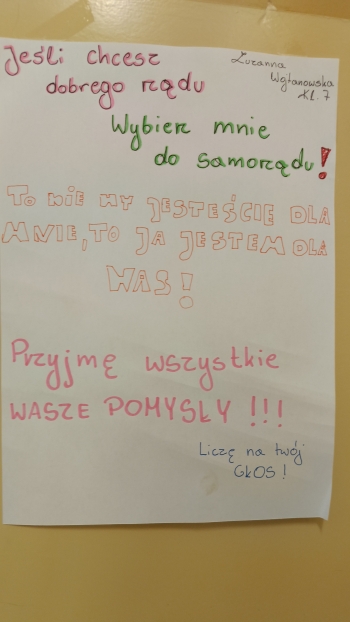 Jeśli chcesz
dobrego rządu
Zuzanna
Wojtanowska
Kl. 7
Wybierz mnie
do samorządu!
TO NIE WY JESTEŚCIE DLA
MNIE, TO JA JESTEM DLA
WAS!
Przyjmę wszystkie
WASZE POMYSŁY !!!
Liczę na twój
GŁOS!